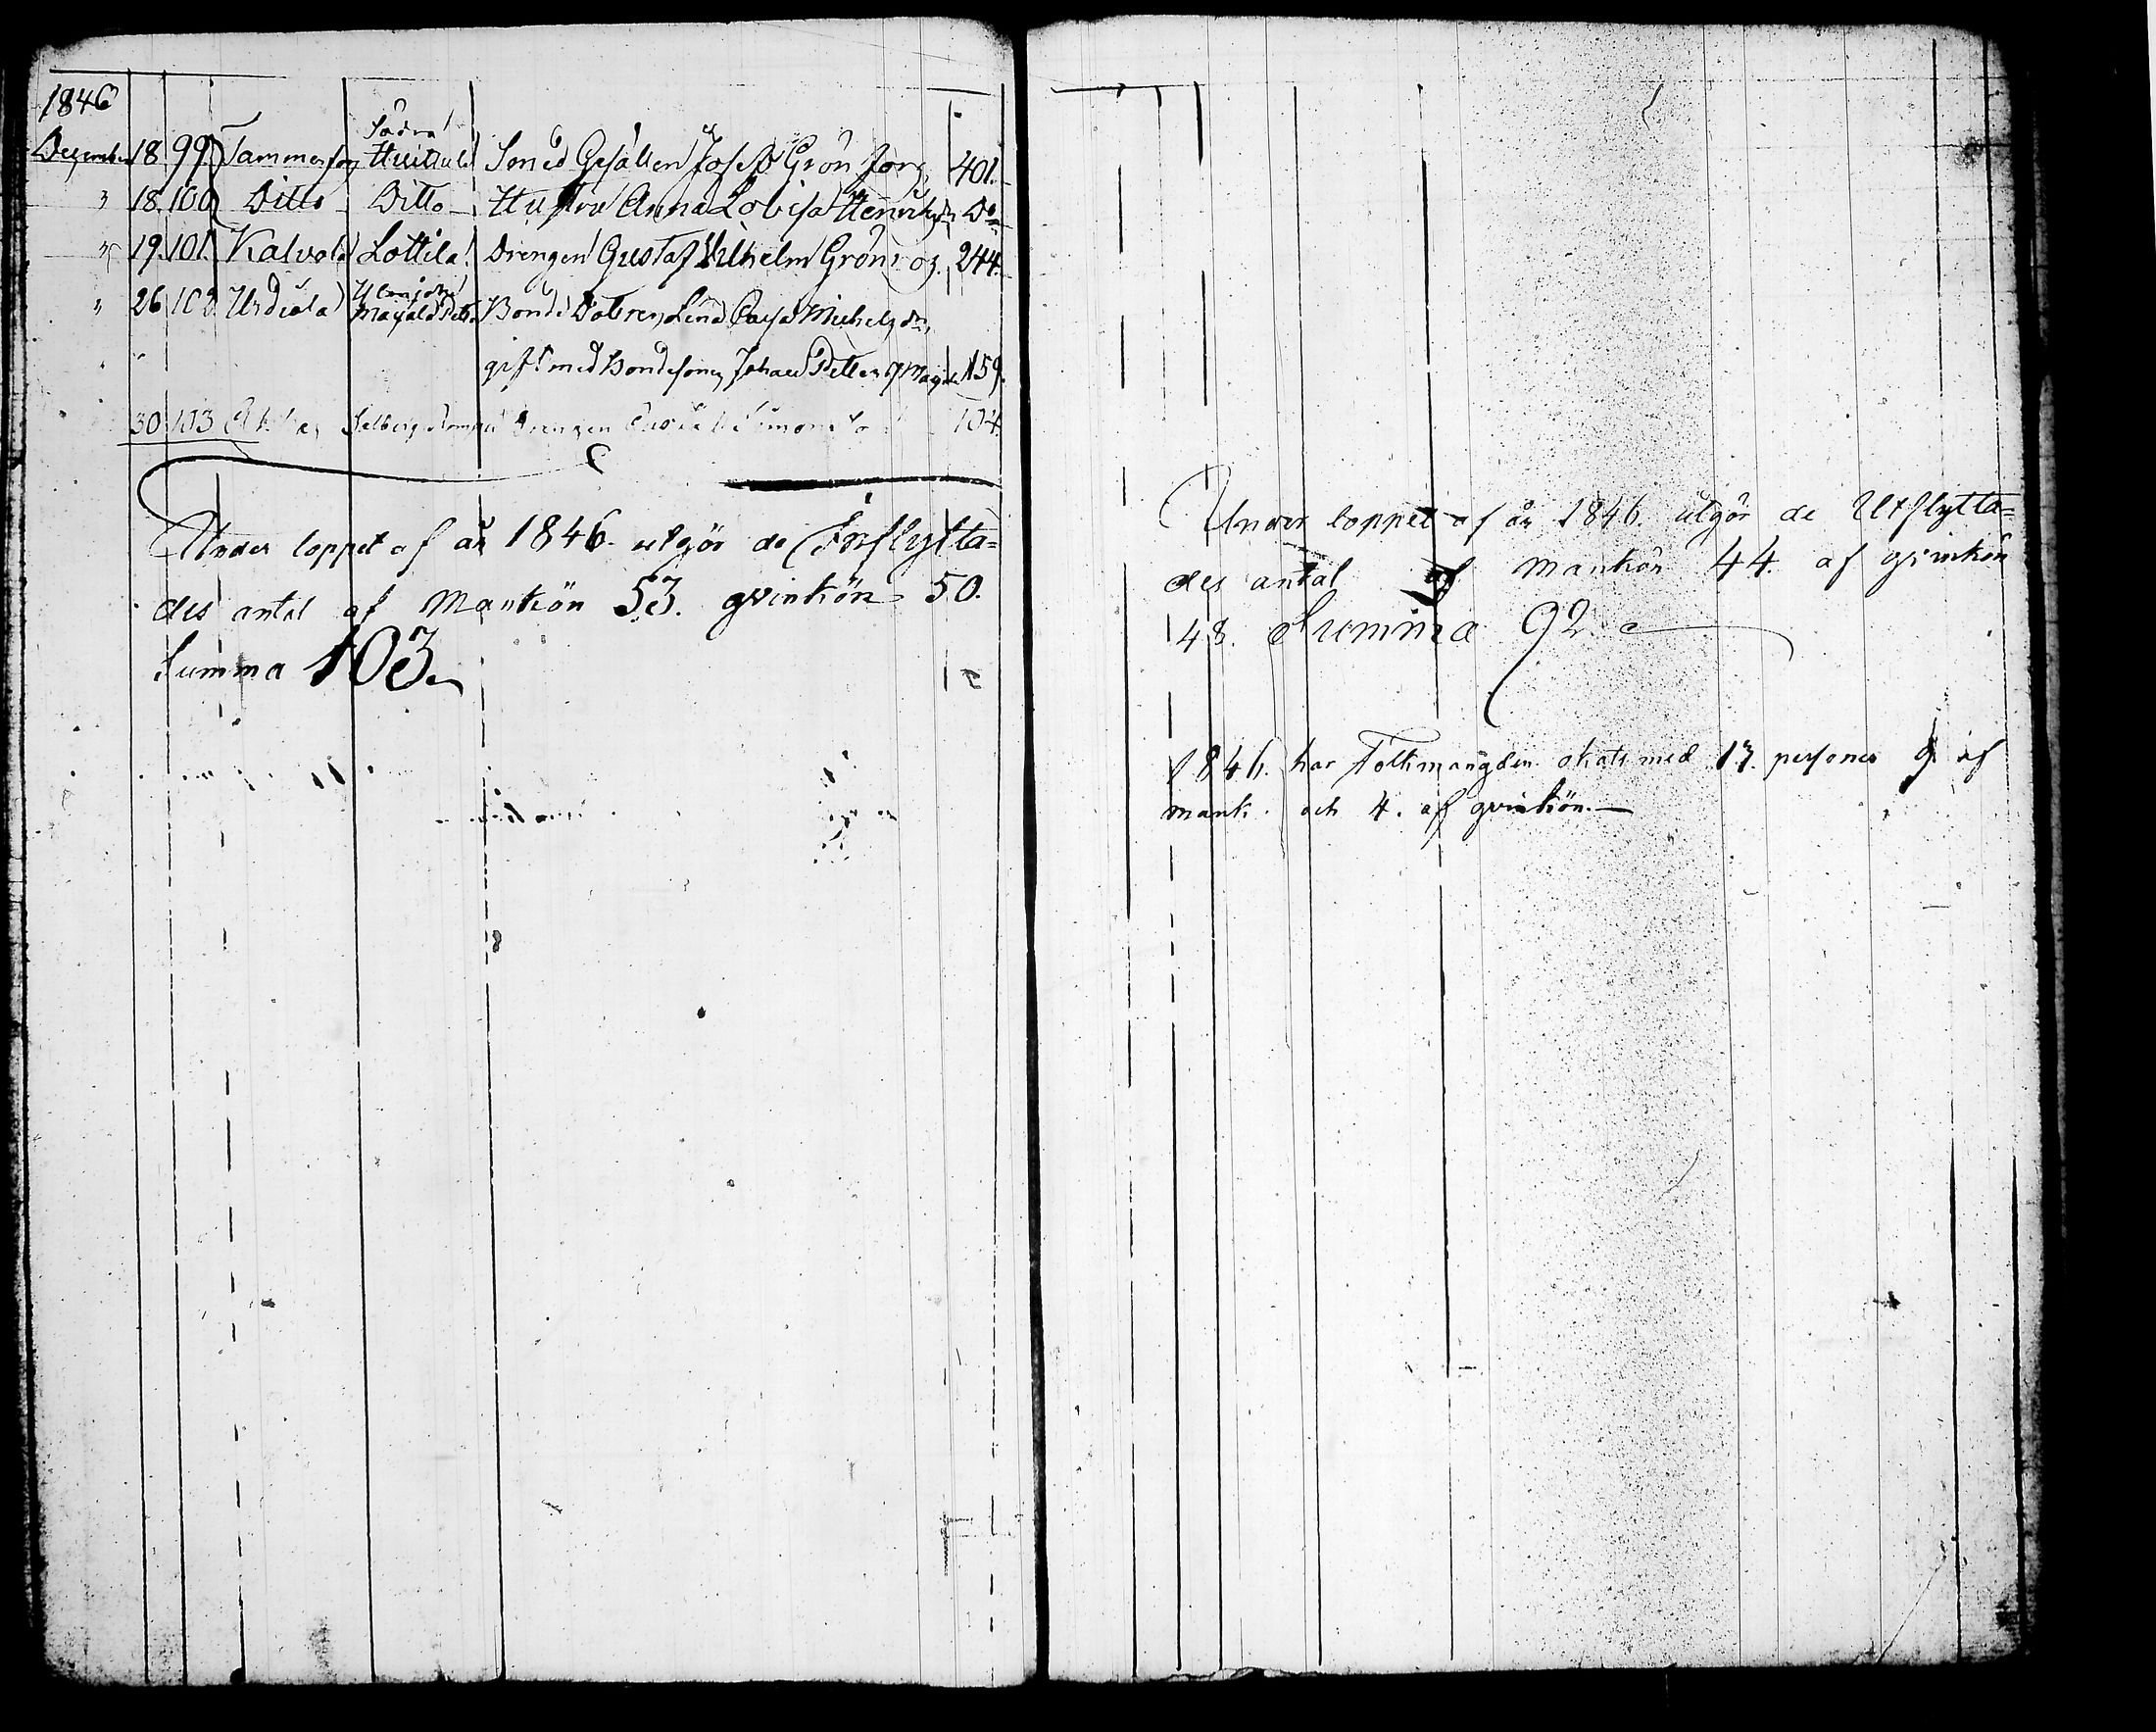 1846
Södra
December 18. 99. Tammerfors Huittula Sme Gesällen Josef Grön Jong. 401.
" 18. 100. Ditto Ditto Hustru Anna Lovisa Henriksdr Do
" 19. 101. Kalvola Lottila Drengen Gustaf Wilhelm Grönroos. 244.
" 26. 102. Urdiala Bonde Dotren Lena Cajsa Michelsdr,
gift med Bondesonen Johan Petter 159.
30 103 Drengen 104.
Under loppet af år 1846. utgör de Inflytta=
des antal af Mankön 53. qvinkön 50.
Summa 103.
Under loppet af år 1846. utgör de Utflytta=
des antal af Mankön 44. af qvinkön
48. Summa 92.
1846. har Folkmängden ökats med 13. personer 9 af
mank. och 4. af qvinkön.